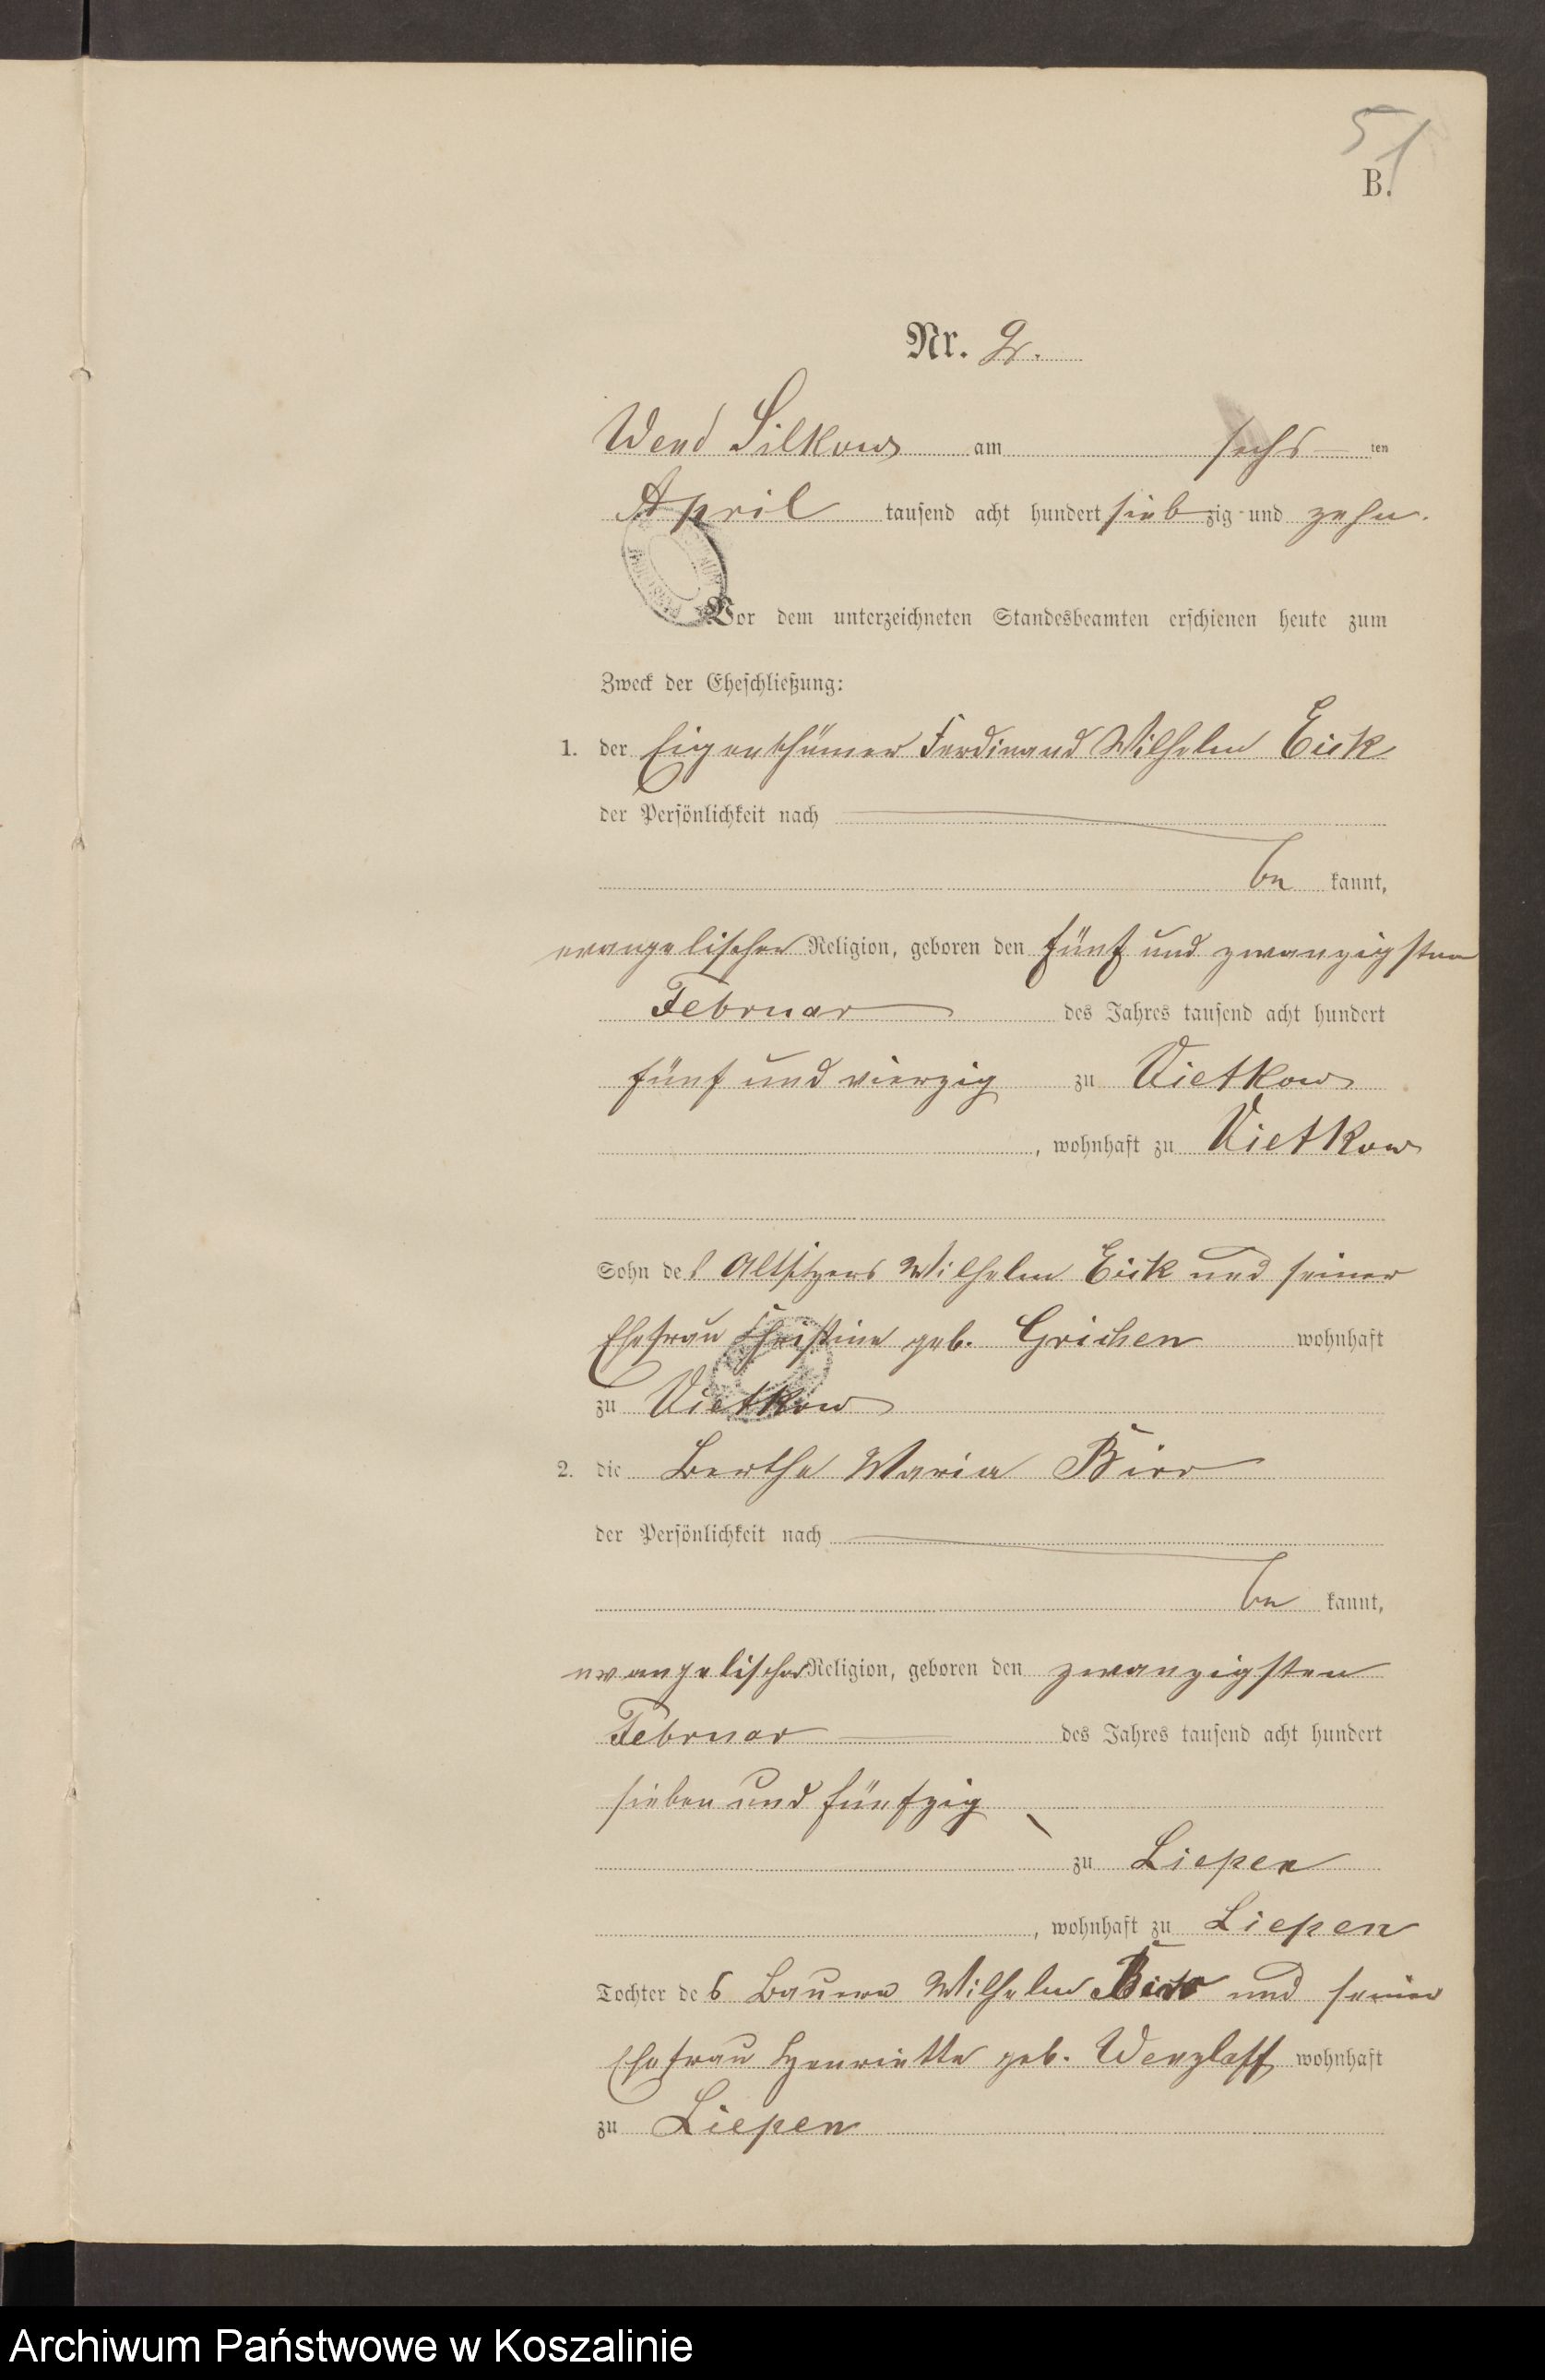 51
B.
Nr. 2.
Wend Silkow am sechsten
April tausend acht hundert siebzig und zehn.
Vor dem unterzeichneten Standesbeamten erschienen heute zum
Zweck der Eheschließung:
1. der Eigenthümer Ferdinand Wilhelm Eick
der Persönlichkeit nach
be kannt,
evangelischer Religion, geboren den fünf und zwanzigsten
Februar des Jahres tausend acht hundert
fünf und vierzig zu Vietkow
, wohnhaft zu Vietkow
Sohn des Altsitzers Wilhelm Eick und seiner
Ehefrau Christine geb. Grichen wohnhaft
zu Vietkow
2. die Bertha Maria Birr
der Persönlichkeit nach
be kannt,
evangelischer Religion, geboren den zwanzigsten
Februar des Jahres tausend acht hundert
sieben und fünfzig
zu Liepen
, wohnhaft zu Liepen
Tochter des Bauern Wilhelm Birr und seiner
Ehefrau Henriette geb. Wenzlaff wohnhaft
zu Liepen
Archiwum Państwowe w Koszalinie